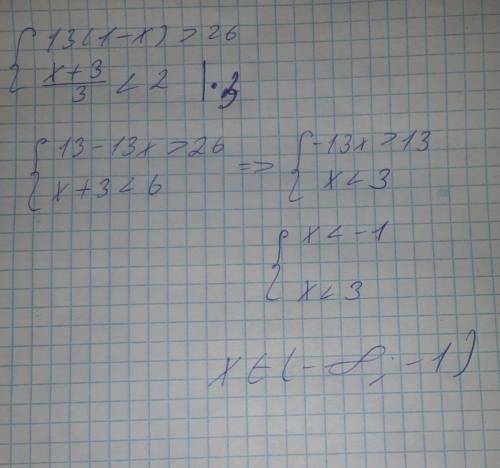 { 13(1-x) > 26
{ (x+3)/3 < 2 | · 3
{ 13-13x > 26 => { -13x > 13
{ x+3 < 6 { x < 3
{ x < -1
{ x < 3
x ∈ (-∞; -1)